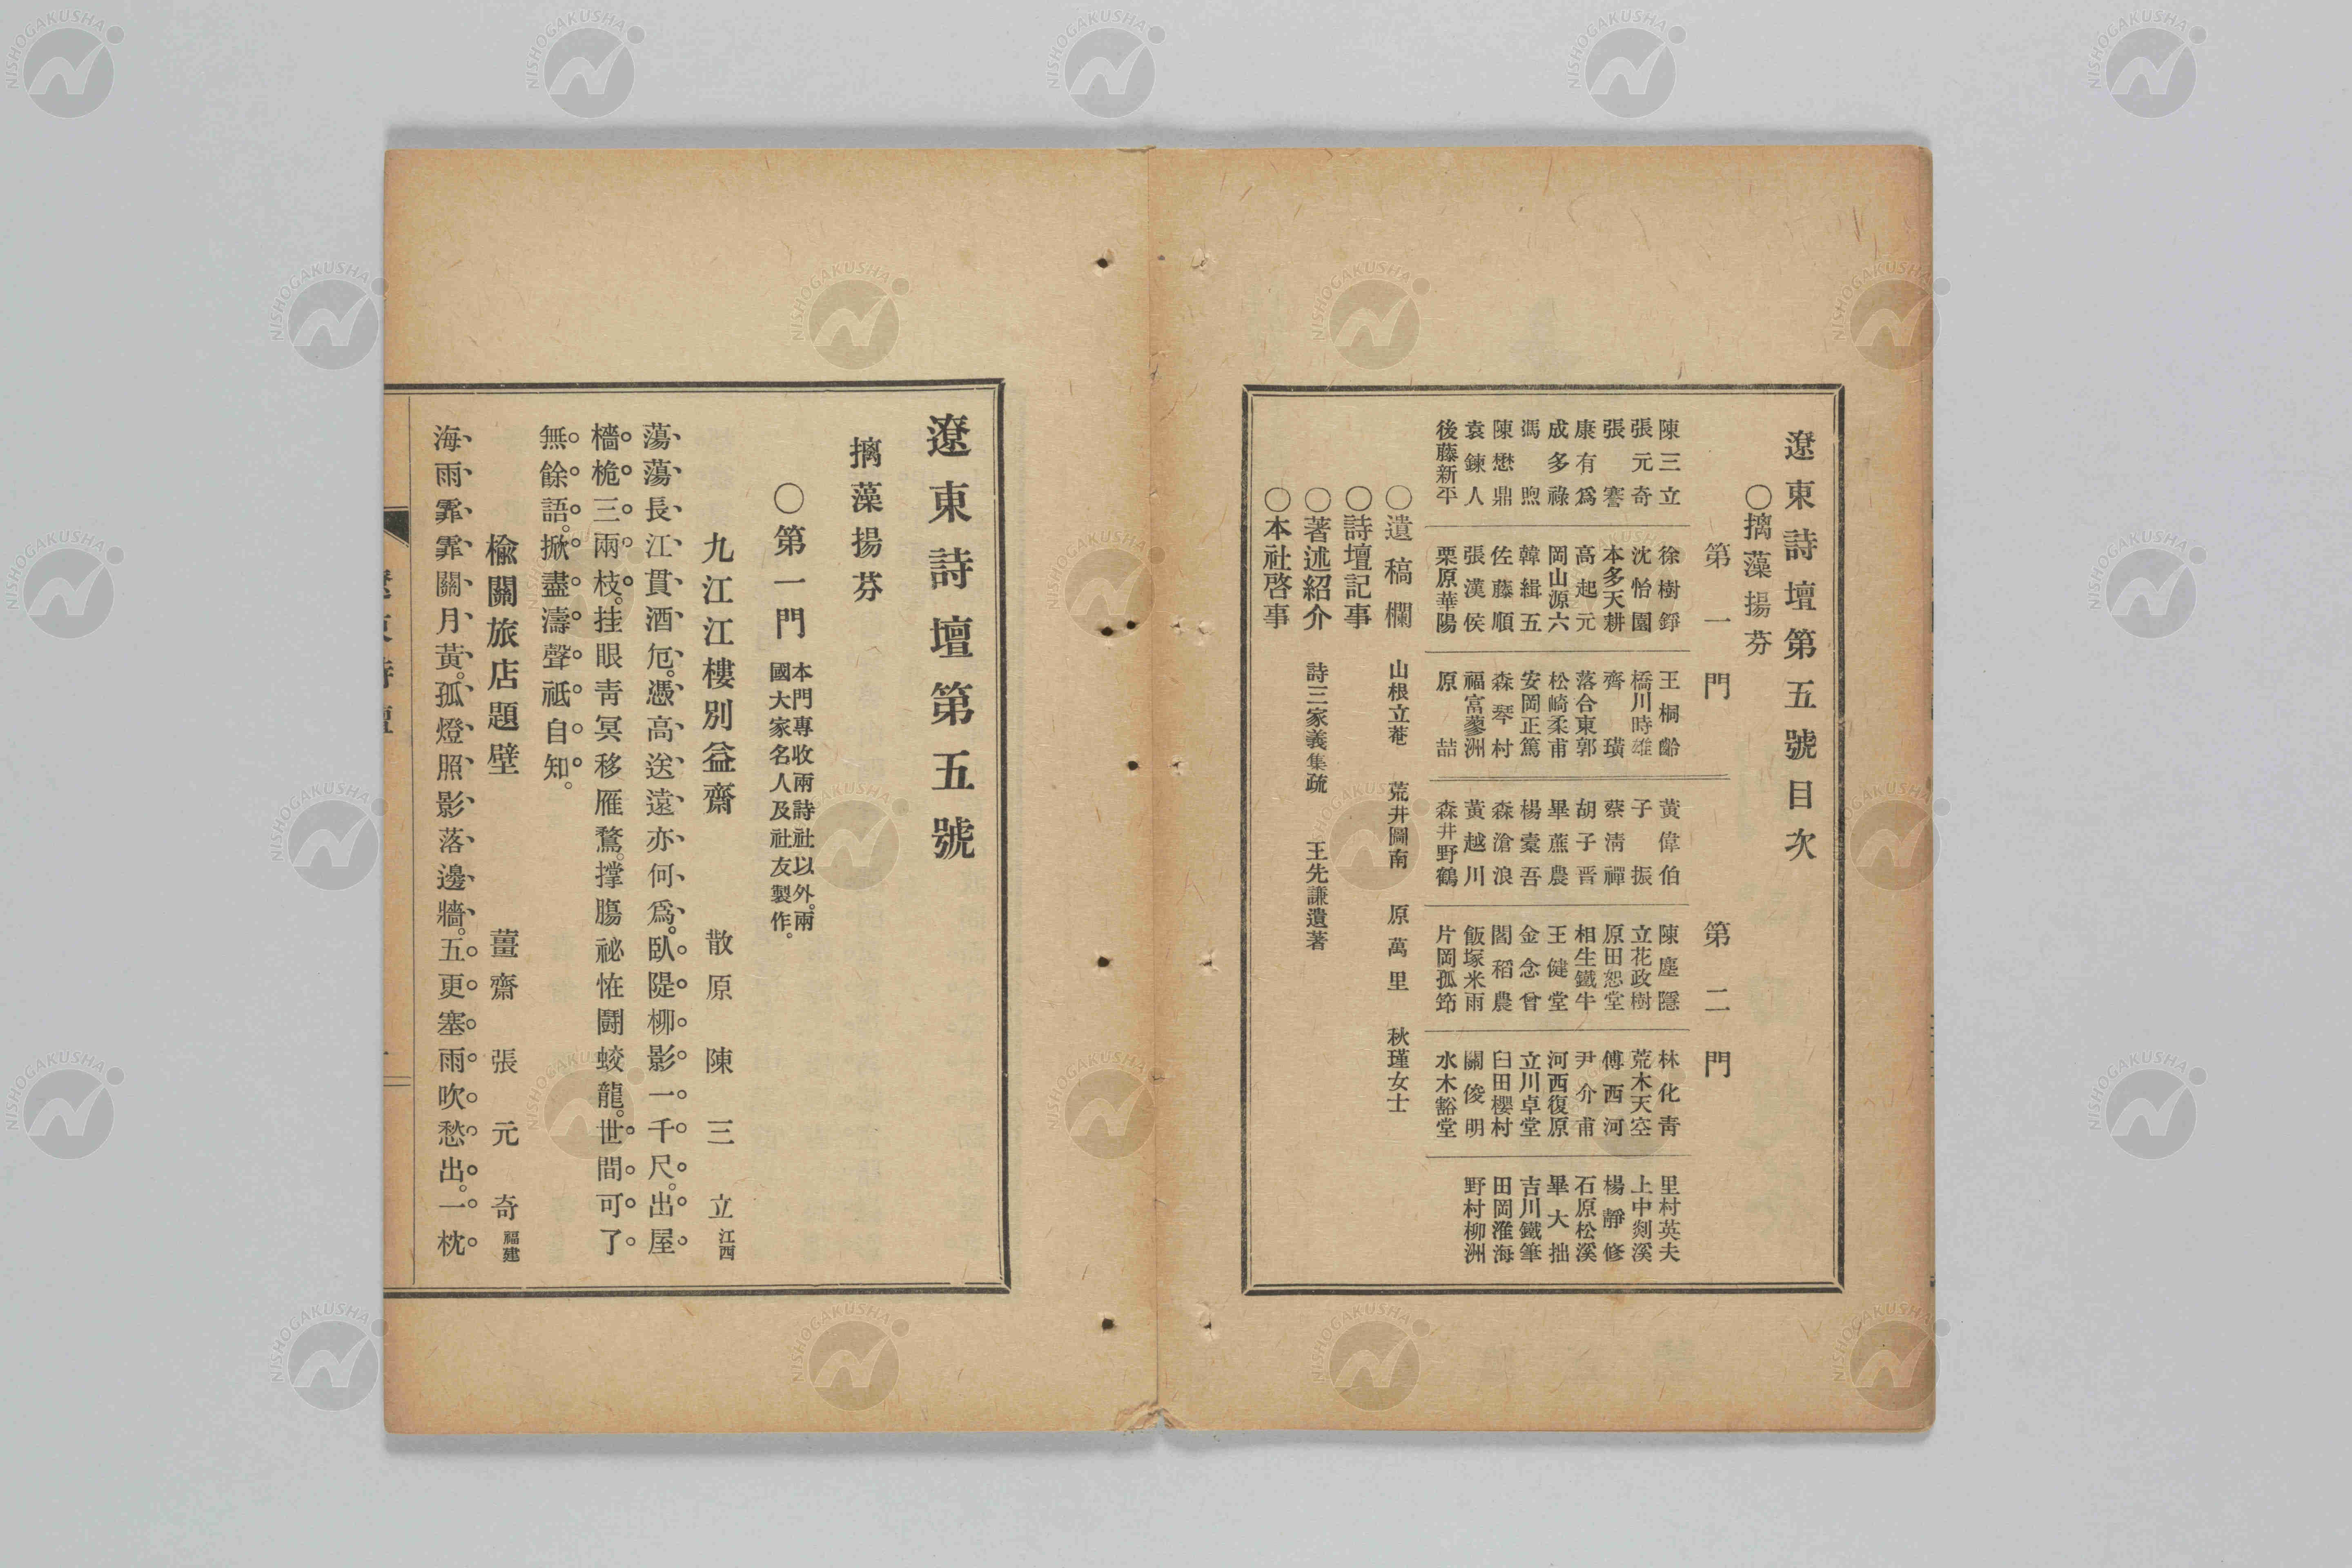 遼東詩壇第五號目次
○摛藻揚芬
第一門
陳三立
張元奇
張謇
康有爲
成多祿
馮煦
陳懋鼎
袁鍊人
後藤新平
徐樹錚
沈怡園
本多天耕
高起元
岡山源六
韓緝五
佐藤順
張漢侯
栗原華陽
王桐齡
橋川時雄
齊璜
落合東郭
松崎柔甫
安岡正篤
森琴村
福富蓼洲
原喆
第二門
黃偉伯
子振
蔡淸禪
胡子晋
畢蔗農
楊槖吾
森滄浪
黃越川
森井野鶴
陳塵隱
立花政樹
原田恕堂
相生鐵牛
王健堂
金念曾
閻稻農
飯塚米雨
片岡孤筇
林化靑
荒木天空
傅西河
尹介甫
河西復原
立川卓堂
臼田櫻村
關俊明
水木豁堂
里村英夫
上中剡溪
楊靜修
石原松溪
畢大拙
吉川鐵筆
田岡淮海
野村柳洲
○遺稿欄 山根立菴 荒井圖南 原萬里 秋瑾女士
○詩壇記事
○著述紹介 詩三家義集疏 王先謙遺著
○本社啓事
遼東詩壇第五號
摛藻揚芬
○第一門 本門專收兩詩社以外。兩
國大家名人及社友製作。
九江江樓別益齋 散原 陳三立 江西
蕩蕩長江貫酒卮。憑高送遠亦何爲。臥隄柳影一千尺。出屋
檣桅三兩枝。挂眼青冥移雁鶩。撐膓祕恠鬪蛟龍。世間可了
無餘語。掀盡濤聲祗自知。
楡關旅店題壁 薑齋 張元奇 福建
海雨霏霏關月黃。孤燈照影落邊牆。五更塞雨吹愁出。一枕
遼東詩壇
一
NISHOGAKUSHA